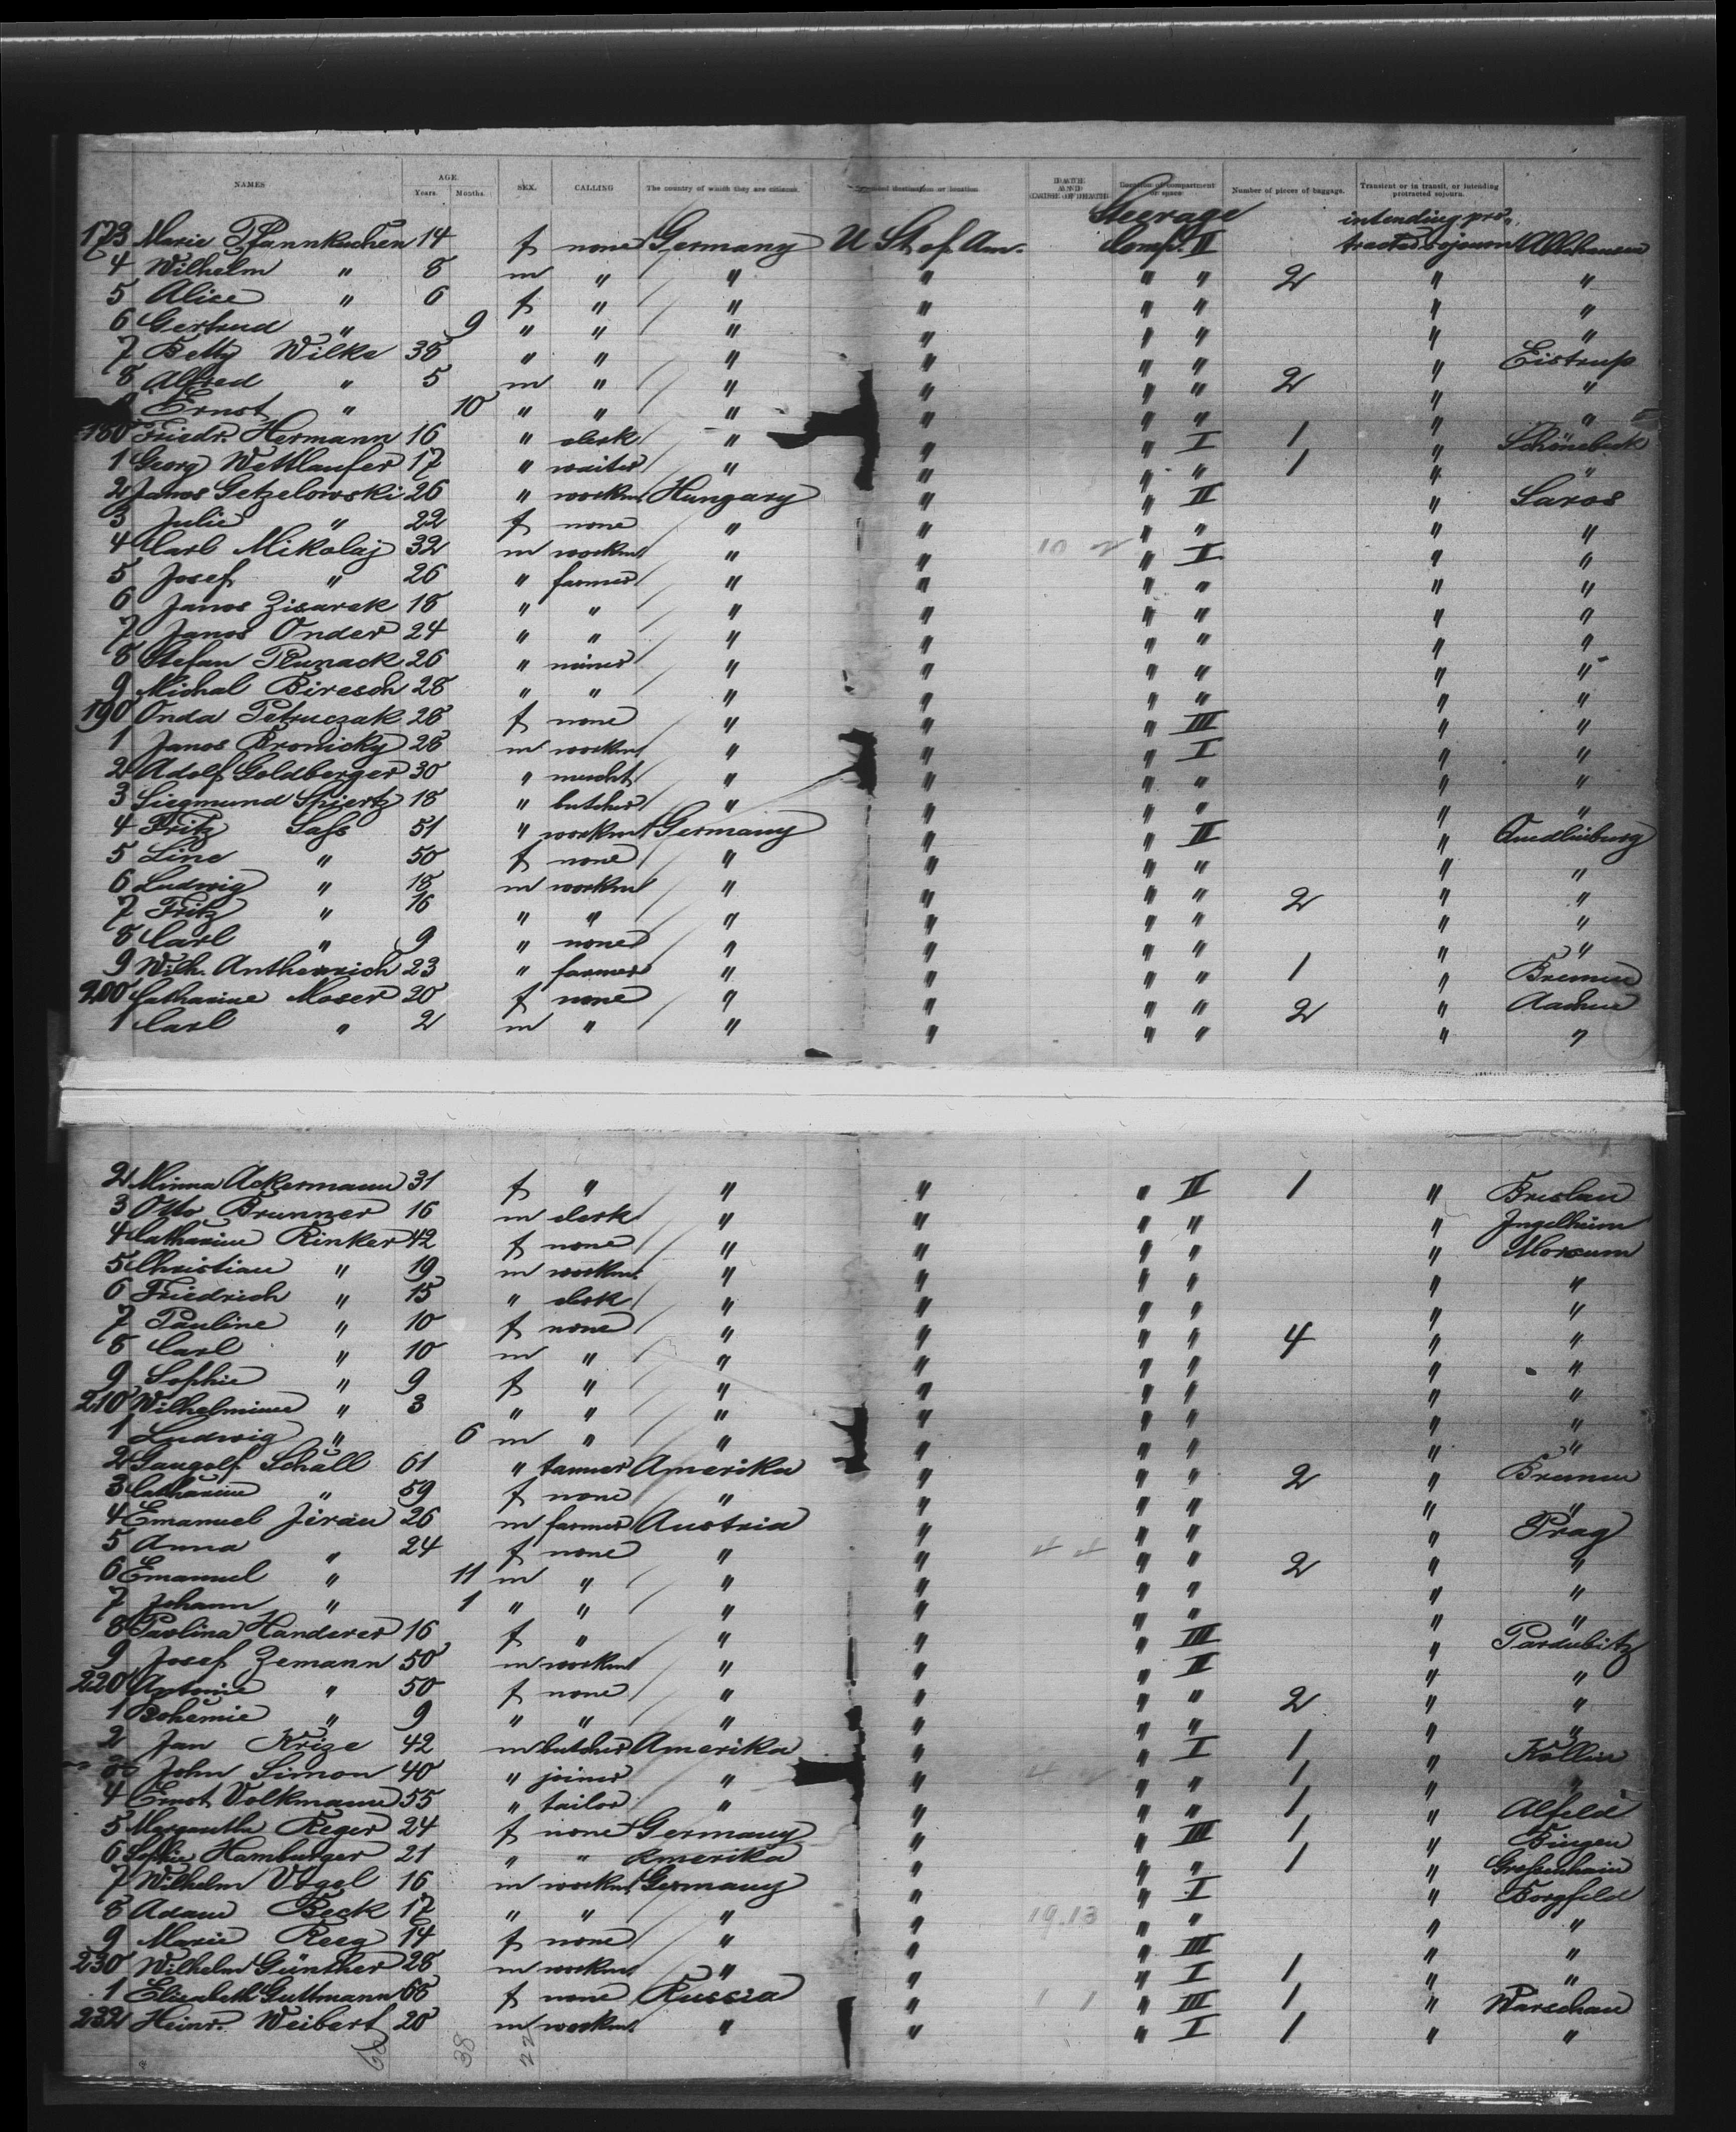 NAMES AGE. Years. Months. SEX. CALLING The country of which they are citizens. destination or location Location of compartment or space Number of pieces of baggage. Transient or in transit, or intending protracted sojourn.
Steerage intending pro-
173 Marie Pfannkuchen 14 f none Germany U St of Am. Comp. II tracted sojourn
4 Wilhelm " 8 m " " " " " 2 " "
5 Alice " 6 f " " " " " " "
6 Gertrud " 9 " " " " " " " "
7 Betty Wilke 38 " " " " " " " Eistrup
8 Alfred " 5 m " " " " " 2 " "
Ernst " 10 " " " " " " " "
180 Friedr. Hermann 16 " clerk " " " I 1 " Schönebeck
1 Georg Wettlaufer 17 " waiter " " " " 1 " "
2 Janos Getzelowski 26 " workm. Hungary " " II " Saros
3 Julie " 22 f none " " " " " "
4 Carl Mikolaj 32 m workm " " 10 " I " "
5 Josef " 26 " farmer " " " " " "
6 Janos Zisarek 18 " " " " " " " "
7 Janos Onder 24 " " " " " " " "
8 Stefan Plunack 26 " miner " " " " " "
9 Michal Biresch 28 " " " " " " " "
190 Onda Petruczak 28 f none " " " III " "
1 Janos Bronicky 28 m workm " " " I " "
2 Adolf Goldberger 30 " mercht " " " " " "
3 Siegmund Spiertz 18 " butcher " " " " " "
4 Fritz Safs 51 " workm Germany " " II " Quedlinburg
5 Line " 50 f none " " " " " "
6 Ludwig " 18 m workm " " " " 2 " "
7 Fritz " 16 " " " " " " " "
8 Carl " 9 " none " " " " " "
9 Wilh. 23 " farmer " " " " 1 " Bremen
200 Catharine Moser 20 f none " " " " 2 " Aachen
1 Carl " 2 m " " " " " " "
2 Minna Ackermann 31 f " " " " II 1 " Breslau
3 Otto Brunner 16 m clerk " " " " " Ingelheim
4 Catharine Rinker 42 f none " " " " " Morsum
5 Christian " 19 m workm. " " " " " "
6 Friedrich " 15 " clerk " " " " " "
7 Pauline " 10 f none " " " " 4 " "
8 Carl " 10 m " " " " " " "
9 Sophie " 9 f " " " " " " "
210 Wilhelmine " 3 " " " " " " " "
1 Ludwig " 6 m " " " " " " "
2 Gangolf Schäll 61 " tanner Amerika " " " 2 " Bremen
3 Catharine " 59 f none " " " " " "
4 Emanuel Jirau 26 m farmer Austria " " " " Prag
5 Anna " 24 f none " " " " 2 " "
6 Emanuel " 11 m " " " " " " "
7 Johann " 1 " " " " " " " "
8 Paulina Handerer 16 f " " " " III " Pardubitz
9 Josef Zemann 50 m workm " " " II " "
220 Antonie " 50 f none " " " " 2 " "
1 Bohemie " 9 " " " " " " " "
2 Jan Krize 42 m butcher Amerika " " I 1 " Kollin
3 John Simon 40 " joiner " " " " 1 " "
4 Ernst Volkmann 55 " tailor " " " " 1 " Alfeld
5 Margarethe Reger 24 f none Germany " " III 1 " Bingen
6 Sophie Hamburger 21 " " Amerika " " " 1 " Großenhain
7 Wilhelm Vogel 16 m workm Germany " " I " Borgfeld
8 Adam Beck 17 " " " " 19.13 " " " "
9 Marie Reeg 14 f none " " " III " "
230 Wilhelm Günther 28 m workm " " " I 1 " "
1 Elisabeth Guttmann 68 f none Russia " 1 1 " III 1 " Warschau
232 Heinr. Weibert 20 m workm. " " " I 1 " "
38 22